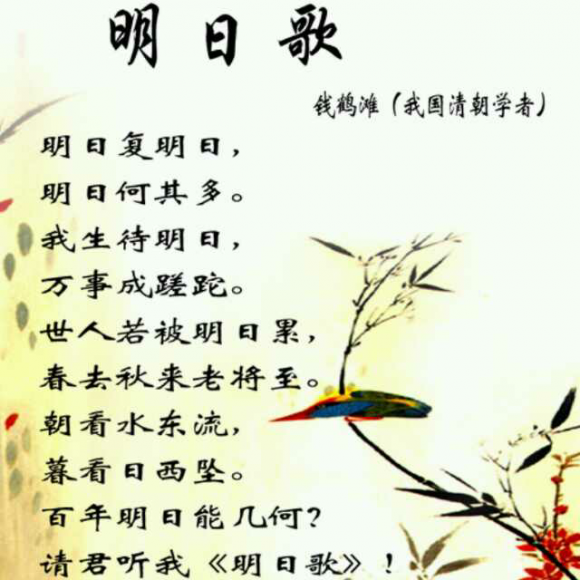 明日歌
钱鹤滩（我国清朝学者）
明日复明日，
明日何其多。
我生待明日，
万事成蹉跎。
世人若被明日累，
春去秋来老将至。
朝看水东流，
暮看日西坠。
百年明日能几何？
请君听我《明日歌》！